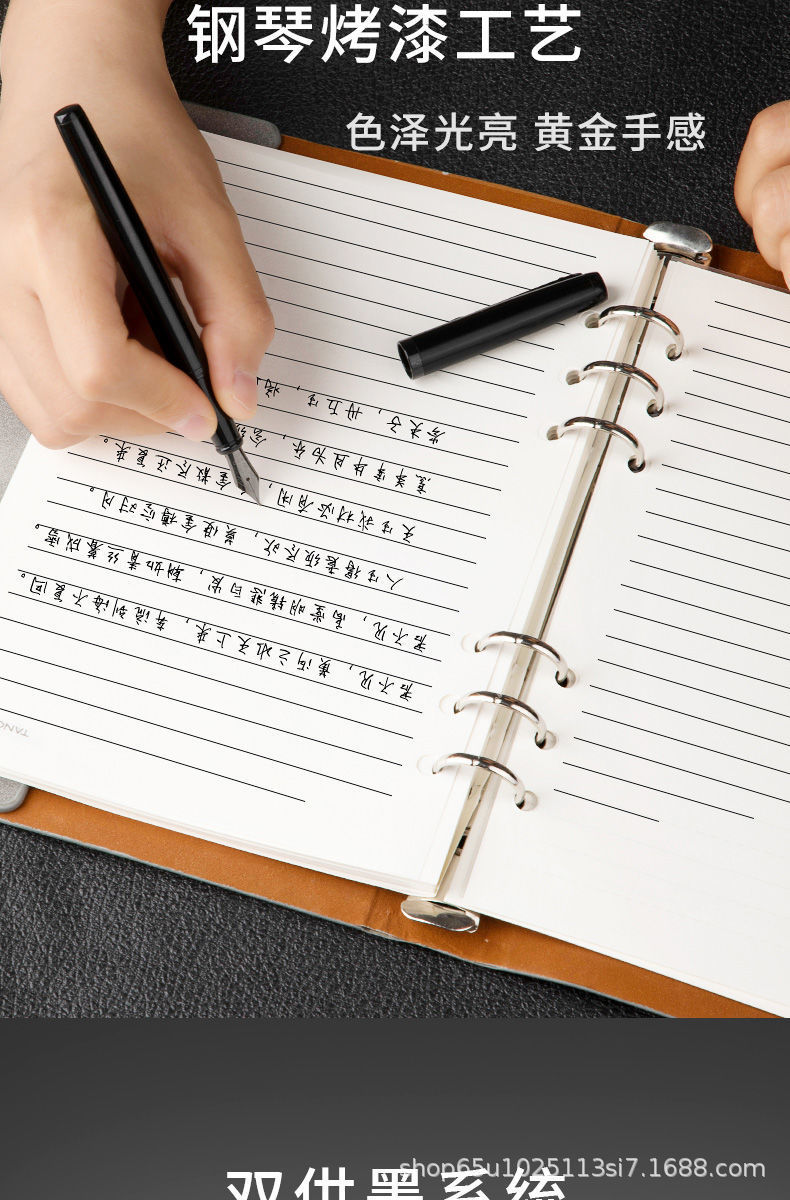 钢琴烤漆工艺
色泽光亮 黄金手感
君不见，黄河之水天上来，奔流到海不复回。
君不见，高堂明镜悲白发，朝如青丝暮成雪。
人生得意须尽欢，莫使金樽空对月。
天生我材必有用，金散尽还复来。
烹羊宰牛且为乐，会
岑夫子，丹丘生，将
双供墨系统
shop65u1025113si7.1688.com